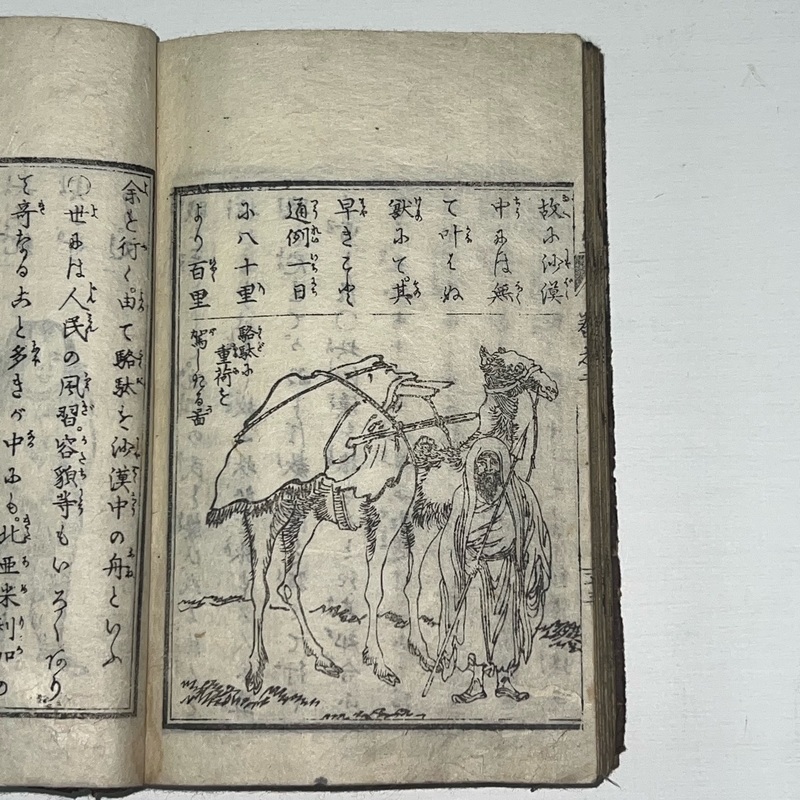 故に沙漠
中には無
て叶はぬ
獣にて其
早きこと
通例一日
に八十里
より百里
駱駝に
重荷を
駕しむる図
余を行く由て駱駝を沙漠中の舟といふ
○世には人民の風習。容貌等もいろ〳〵あり
て奇なること多きが中にも。北亜米利加の